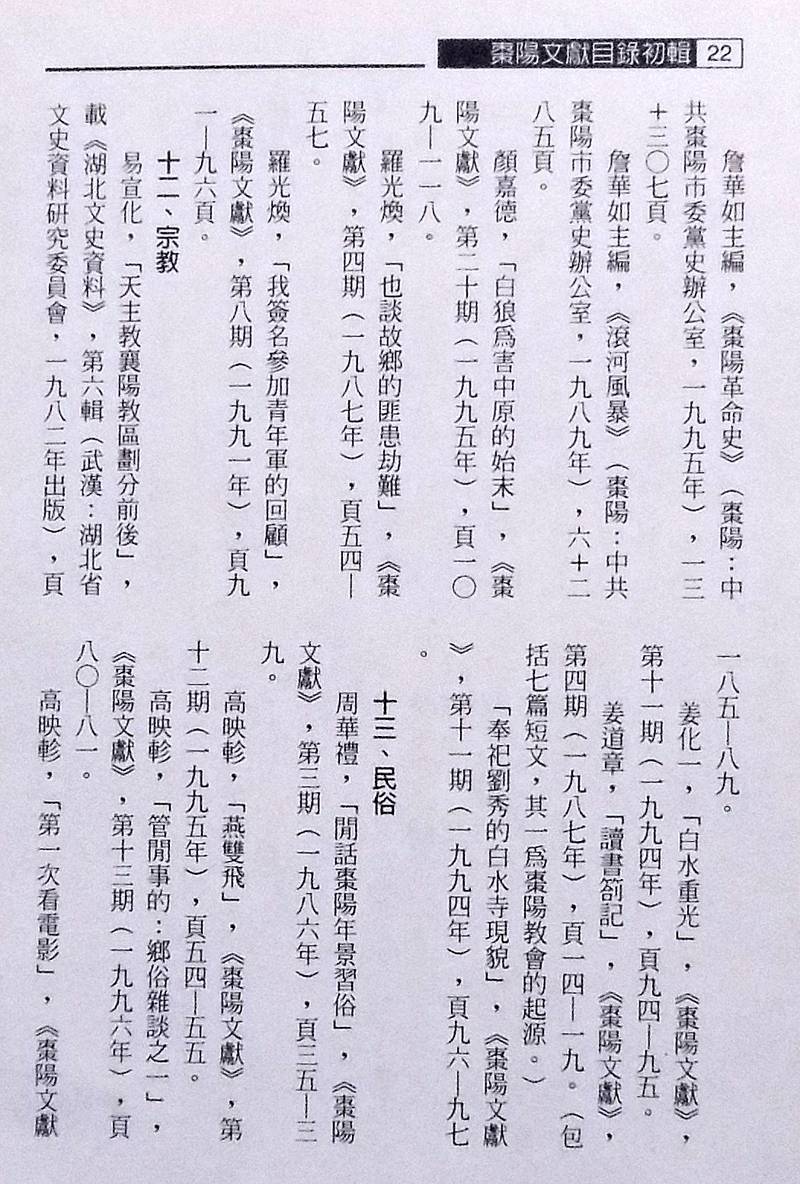 棗陽文獻目錄初輯 22
詹華如主編，《棗陽革命史》（棗陽：中
共棗陽市委黨史辦公室，一九九五年），一三
＋三〇七頁。
詹華如主編，《滾河風暴》（棗陽：中共
棗陽市委黨史辦公室，一九八九年），六十二
八五頁。
顏嘉德，「白狼爲害中原的始末」，《棗
陽文獻》，第二十期（一九九五年），頁一〇
九—一一八。
羅光煥，「也談故鄉的匪患劫難」，《棗
陽文獻》，第四期（一九八七年），頁五四—
五七。
羅光煥，「我簽名參加青年軍的回顧」，
《棗陽文獻》，第八期（一九九一年），頁九
一—九六頁。
十二、宗教
易宣化，「天主教襄陽教區劃分前後」，
載《湖北文史資料》，第六輯（武漢：湖北省
文史資料研究委員會，一九八二年出版），頁
一八五—八九。
姜化一，「白水重光」，《棗陽文獻》，
第十一期（一九九四年），頁九四—九五。
姜道章，「讀書箚記」，《棗陽文獻》，
第四期（一九八七年），頁一四—一九。（包
括七篇短文，其一爲棗陽教會的起源。）
「奉祀劉秀的白水寺現貌」，《棗陽文獻
》，第十一期（一九九四年），頁九六—九七
。
十三、民俗
周華禮，「閒話棗陽年景習俗」，《棗陽
文獻》，第三期（一九八六年），頁三五—三
九。
高映軫，「燕雙飛」，《棗陽文獻》，第
十二期（一九九五年），頁五四—五五。
高映軫，「管閒事的：鄉俗雜談之一」，
《棗陽文獻》，第十三期（一九九六年），頁
八〇—八一。
高映軫，「第一次看電影」，《棗陽文獻